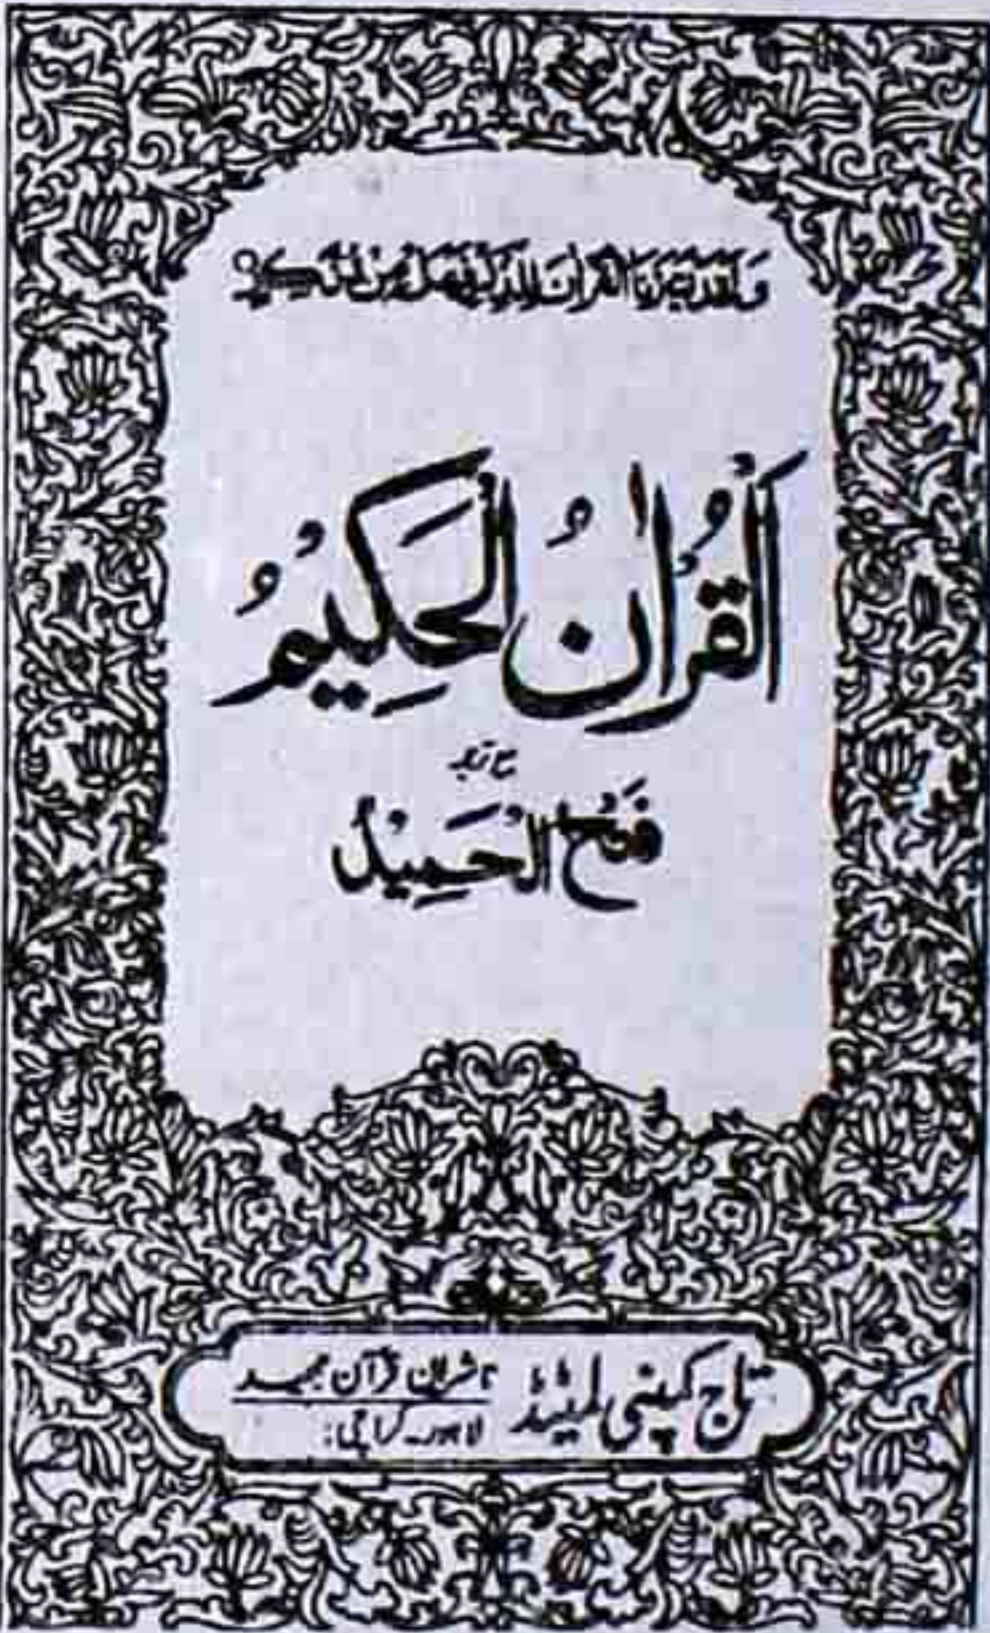 وَلَقَدْ يَسَّرْنَا الْقُرْاٰنَ لِلذِّكْرِ فَهَلْ مِنْ مُّدَّكِرٍ
اَلْقُرْاٰنُ الْحَكِيْمُ
مع ترجمہ
فَتْحُ الْحَمِيْدُ
تاج کمپنی لمیٹڈ
ناشران قرآن مجید
لاہور۔ کراچی